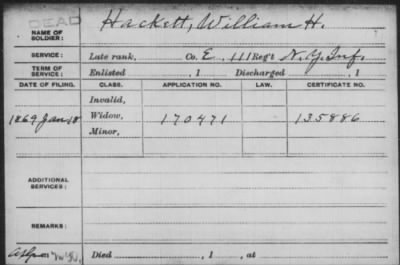 DEAD
NAME OF SOLDIER: Hackett, William H.
SERVICE: Late rank, Co. E, 111 Reg't N.Y. Inf.
TERM OF SERVICE: Enlisted , 1 Discharged , 1
DATE OF FILING. CLASS. APPLICATION NO. LAW. CERTIFICATE NO.
Invalid,
1869 Jan 18 Widow, 170471 135886
Minor,
ADDITIONAL SERVICES:
REMARKS:
Died , 1 , at